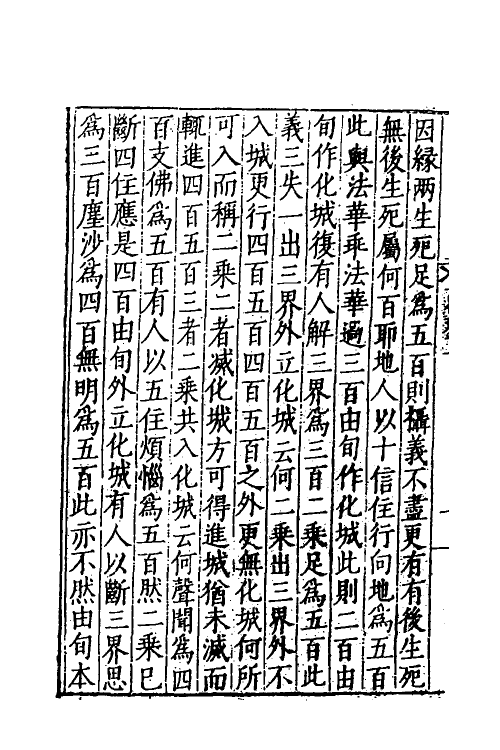 因緣兩生死足爲五百則攝義不盡更有有後生死
無後生死屬何百耶地人以十信住行向地爲五百
此與法華乖法華過三百由旬作化城此則二百由
旬作化城復有人解三界爲三百二乘足爲五百此
義三失一出三界外立化城云何二乘出三界外不
入城更行四百五百四百五百之外更無化城何所
可入而稱二乘二者滅化城方可得進城猶未滅而
輒進四百五百三者二乘共入化城云何聲聞爲四
百支佛爲五百有人以五住煩惱爲五百然二乘已
斷四住應是四百由旬外立化城有人以斷三界思
爲三百塵沙爲四百無明爲五百此亦不然由旬本